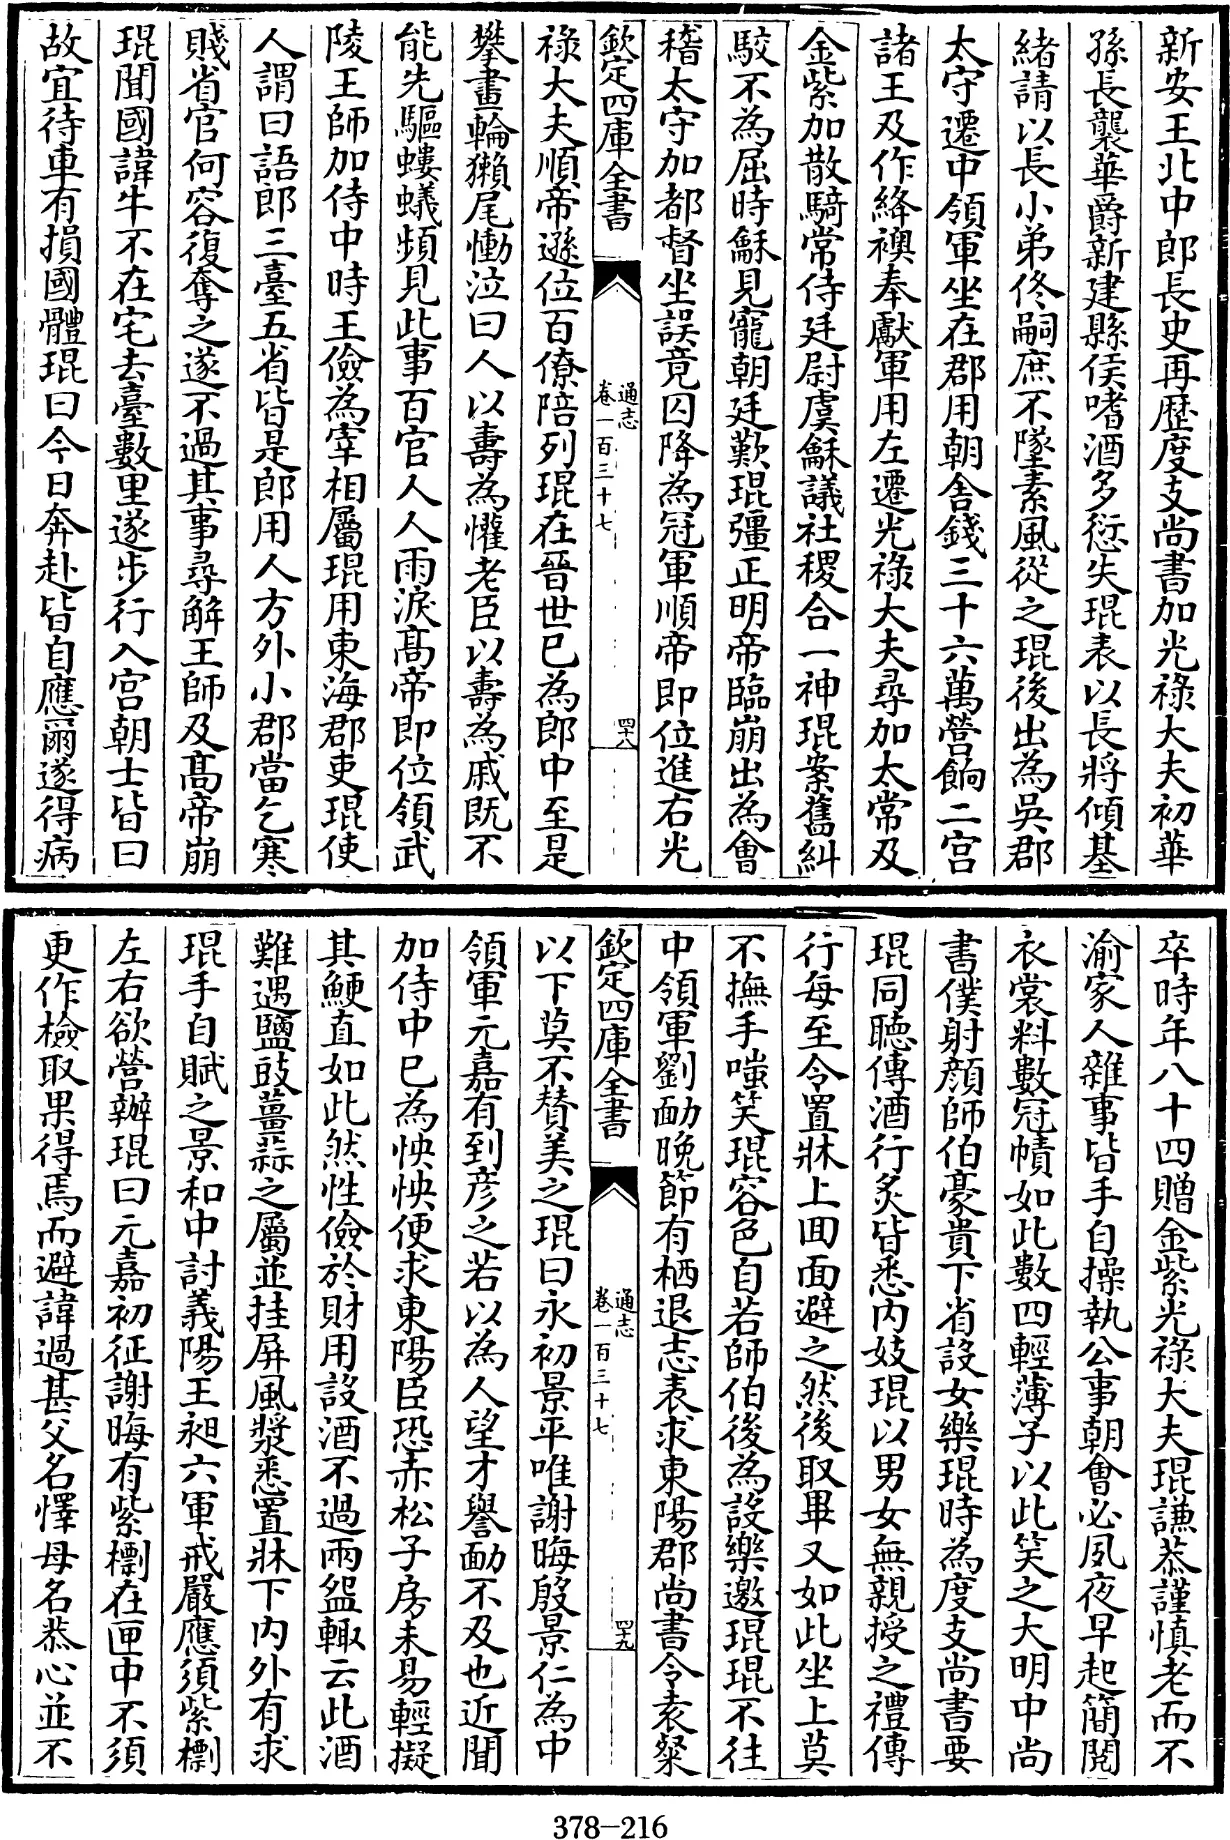 新安王北中郎長史再歷度支尚書加光祿大夫初華
孫長襲華爵新建縣侯嗜酒多愆失琨表以長將傾基
緒請以長小弟佟嗣庶不墜素風從之琨後出為吳郡
太守遷中領軍坐在郡用朝舍錢三十六萬營餉二宮
諸王及作絳襖奉獻軍用左遷光祿大夫尋加太常及
金紫加散騎常侍廷尉虞龢議社稷合一神琨案舊糾
駮不為屈時龢見寵朝廷歎琨彊正明帝臨崩出為會
稽太守加都督坐誤竟囚降為冠軍順帝即位進右光
欽定四庫全書
通志
卷一百三十七
四十八
祿大夫順帝遜位百僚陪列琨在晉世已為郎中至是
攀畫輪獺尾慟泣曰人以壽為懽老臣以壽為戚既不
能先驅螻蟻頻見此事百官人人雨淚髙帝即位領武
陵王師加侍中時王儉為宰相屬琨用東海郡吏琨使
人謂曰語郎三臺五省皆是郎用人方外小郡當乞寒
賤省官何容復奪之遂不過其事尋解王師及髙帝崩
琨聞國諱牛不在宅去臺數里遂步行入宫朝士皆曰
故宜待車有損國體琨曰今日奔赴皆自應爾遂得病
卒時年八十四贈金紫光祿大夫琨謙恭謹慎老而不
渝家人雜事皆手自操執公事朝會必夙夜早起簡閱
衣裳料數冠幘如此數四輕薄子以此笑之大明中尚
書僕射顔師伯豪貴下省設女樂琨時為度支尚書要
琨同聽傳酒行炙皆悉內妓琨以男女無親授之禮傳
行每至令置牀上回面避之然後取畢又如此坐上莫
不撫手嗤笑琨容色自若師伯後為設樂邀琨琨不往
中領軍劉勔晚節有栖退志表求東陽郡尚書令袁粲
欽定四庫全書
通志
卷一百三十七
四十九
以下莫不賛美之琨曰永初景平唯謝晦殷景仁為中
領軍元嘉有到彦之若以為人望才譽勔不及也近聞
加侍中已為怏怏便求東陽臣恐赤松子房未易輕擬
其鯁直如此然性儉於財用設酒不過兩盌輙云此酒
難遇鹽豉薑蒜之屬並挂屏風漿悉置牀下内外有求
琨手自賦之景和中討義陽王昶六軍戒嚴應須紫㯹
左右欲營辦琨曰元嘉初征謝晦有紫㯹在匣中不須
更作檢取果得焉而避諱過甚父名懌母名恭心並不
378-216